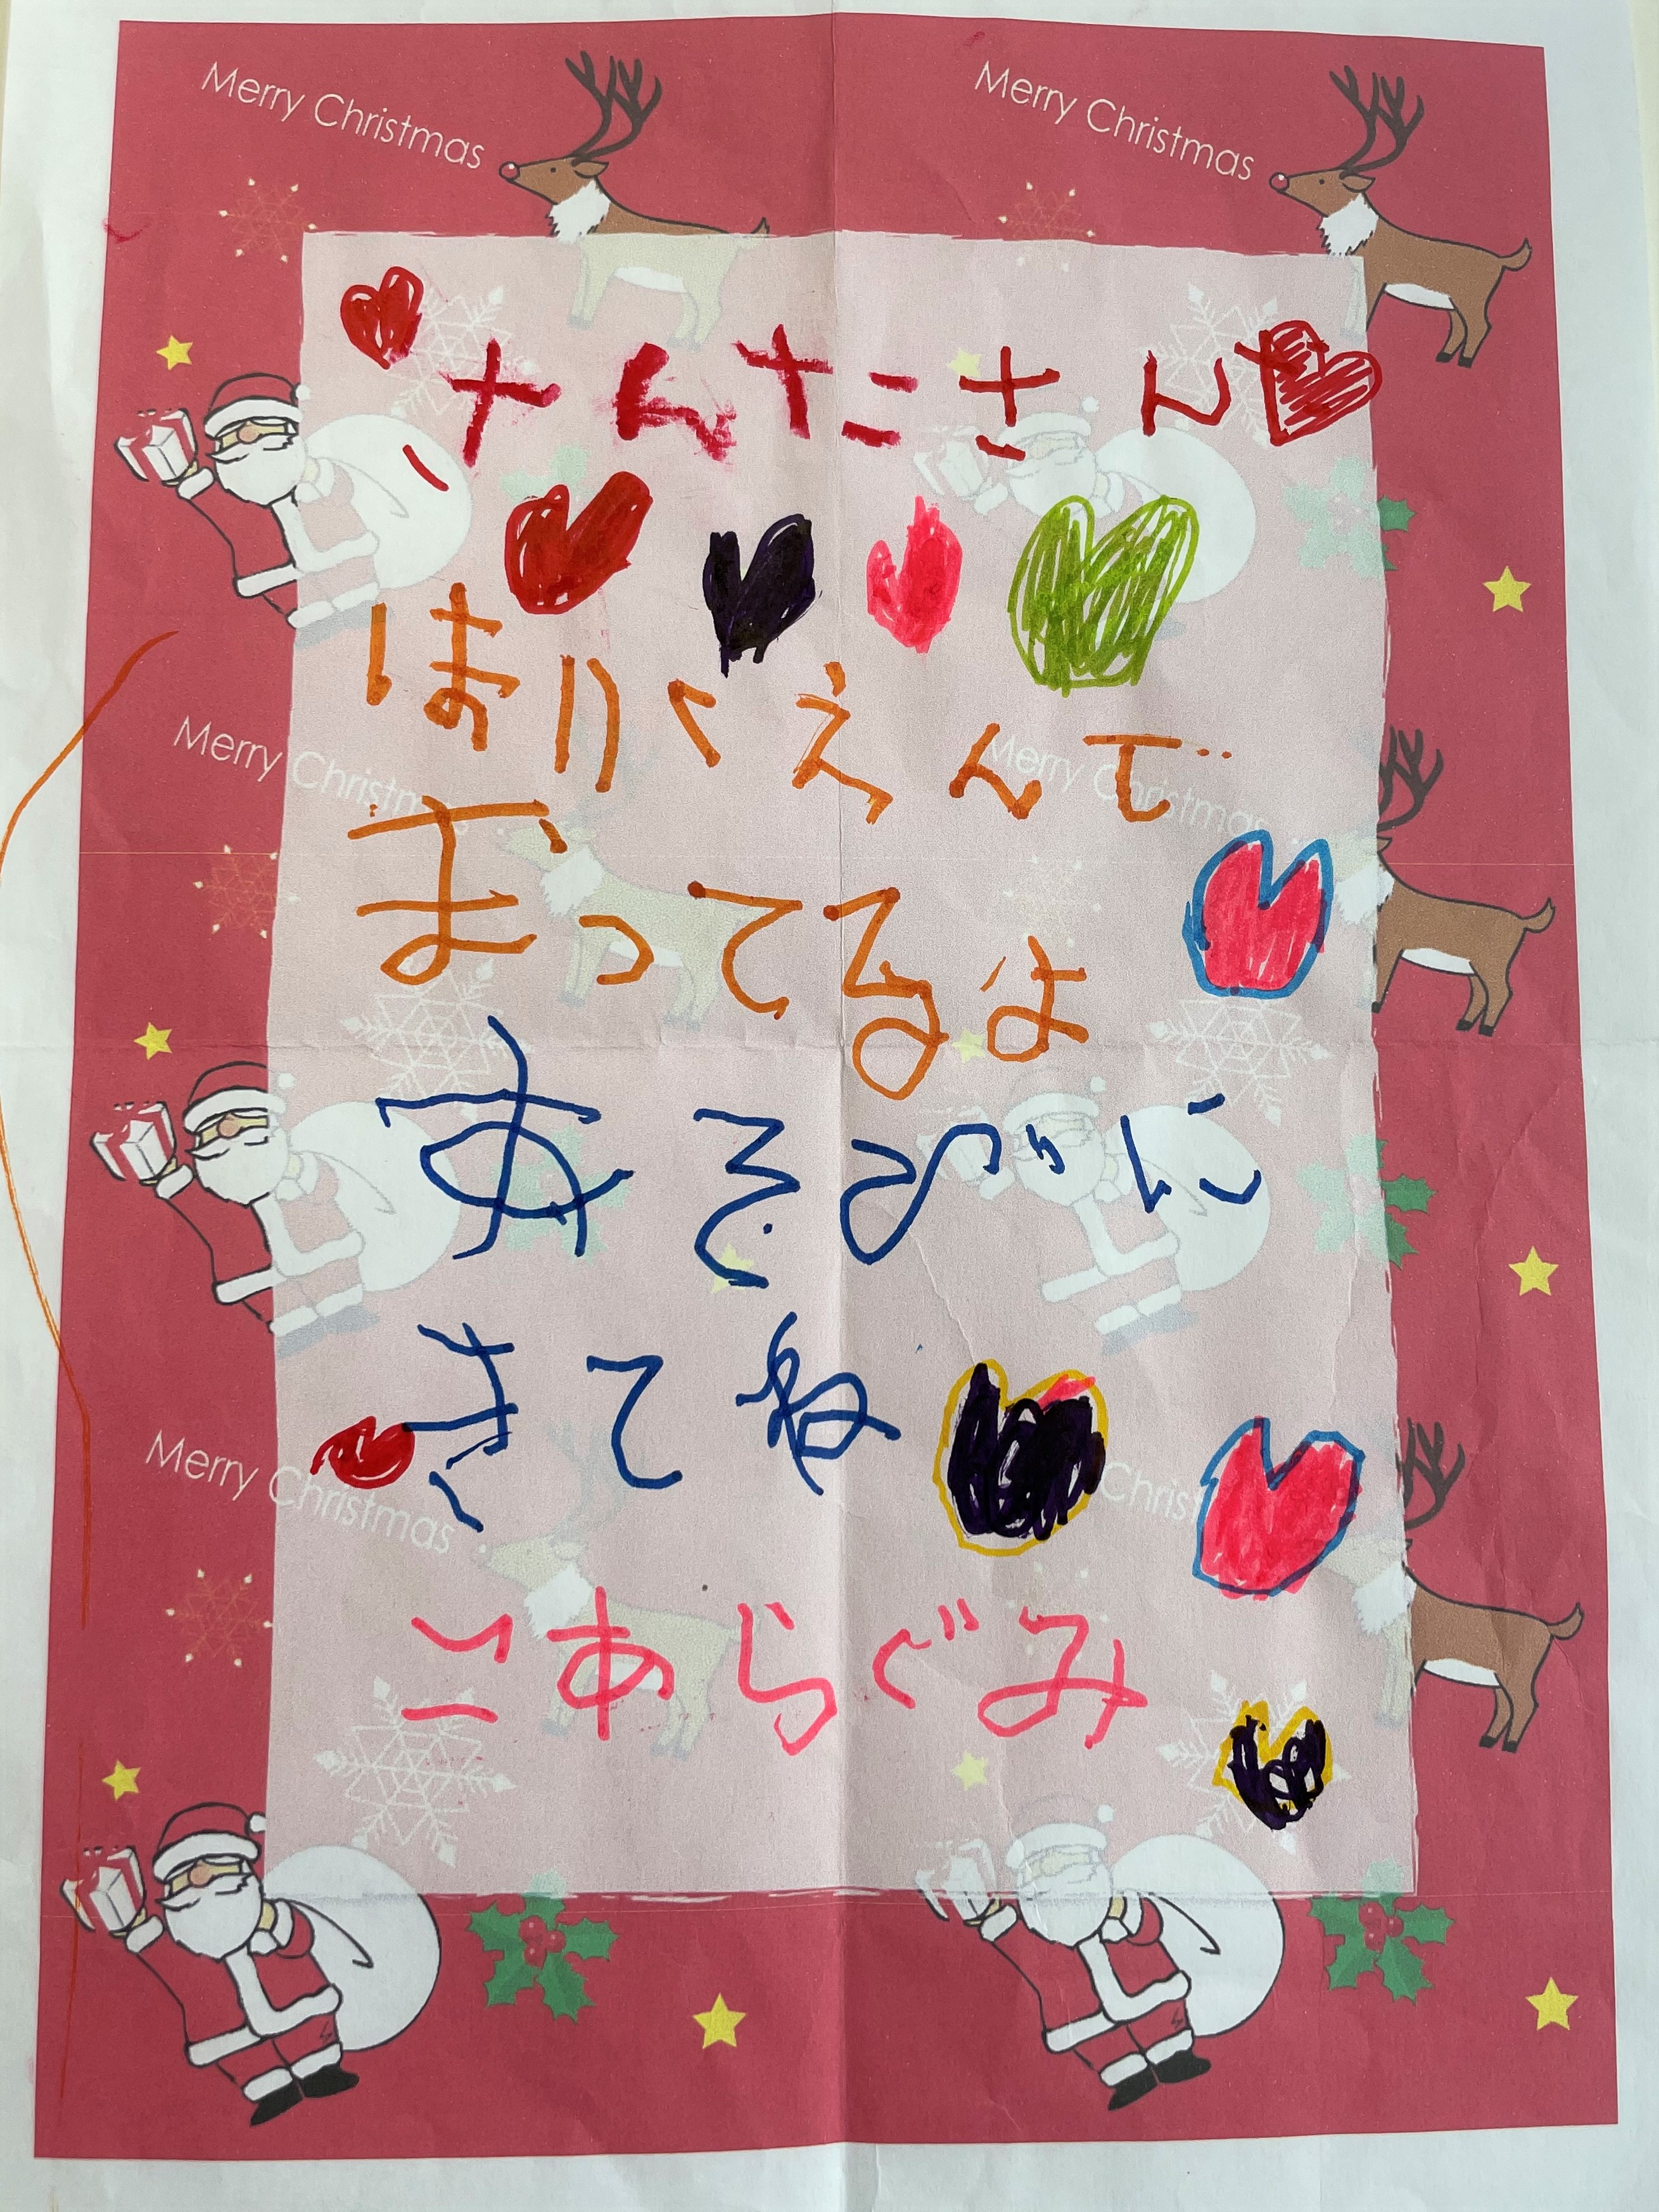 Merry Christmas
Merry Christmas
さんたさん
ほいくえんで
Merry Christmas
Merry Christmas
まってるよ
あそびに
きてね
Merry Christmas
Christ
こあらぐみ